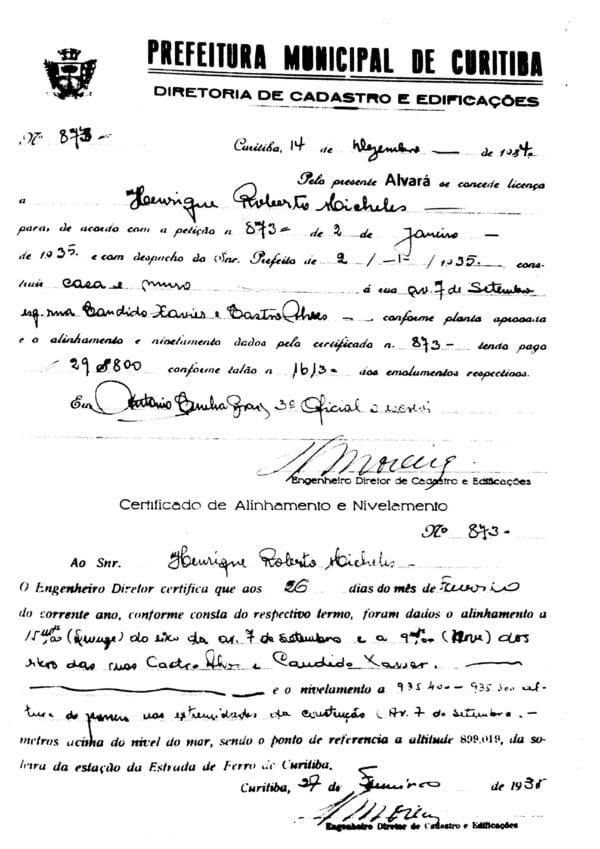 PREFEITURA MUNICIPAL DE CURITIBA
DIRETORIA DE CADASTRO E EDIFICAÇÕES
Nº 873-
Curitiba, 14 de Dezembro de 1934.
Pelo presente Alvará se concede licença
a Henrique Roberto Micheles
para, de acordo com a petição n 873- de 2 de Janeiro
de 1935. e com despacho do Snr. Prefeito de 2 / -1- / 1935. cons-
truir casa e muro á rua av. 7 de Setembro
esq. rua Candido Xavier e Castro Alves -, conforme planta aprovada
e o alinhamento e nivelamento dados pelo certificado n. 873- tendo pago
29$800 conforme talão n 1613- dos emolumentos respectivos.
Eu, Antonio Cunha 3º Oficial o escrevi
Engenheiro Diretor de Cadastro e Edificações
Certificado de Alinhamento e Nivelamento
Nº 873-
Ao Snr. Henrique Roberto Micheles-
O Engenheiro Diretor certifica que aos 26 dias do mês de Fevereiro
do corrente ano, conforme consta do respectivo termo, foram dados o alinhamento a
15 (Quinze) do eixo da av. 7 de Setembro e a 9 (Nove) dos
eixos das ruas Castro Alves e Candido Xavier.
e o nivelamento a 935.400 - 935.300 al-
tura do passeio nas extremidades da construção (Av. 7 de Setembro. -
metros acima do nivel do mar, sendo o ponto de referencia a altitude 899.019, da so-
leira da estação da Estrada de Ferro de Curitiba.
Curitiba, 27 de Fevereiro de 1935
Engenheiro Diretor de Cadastro e Edificações